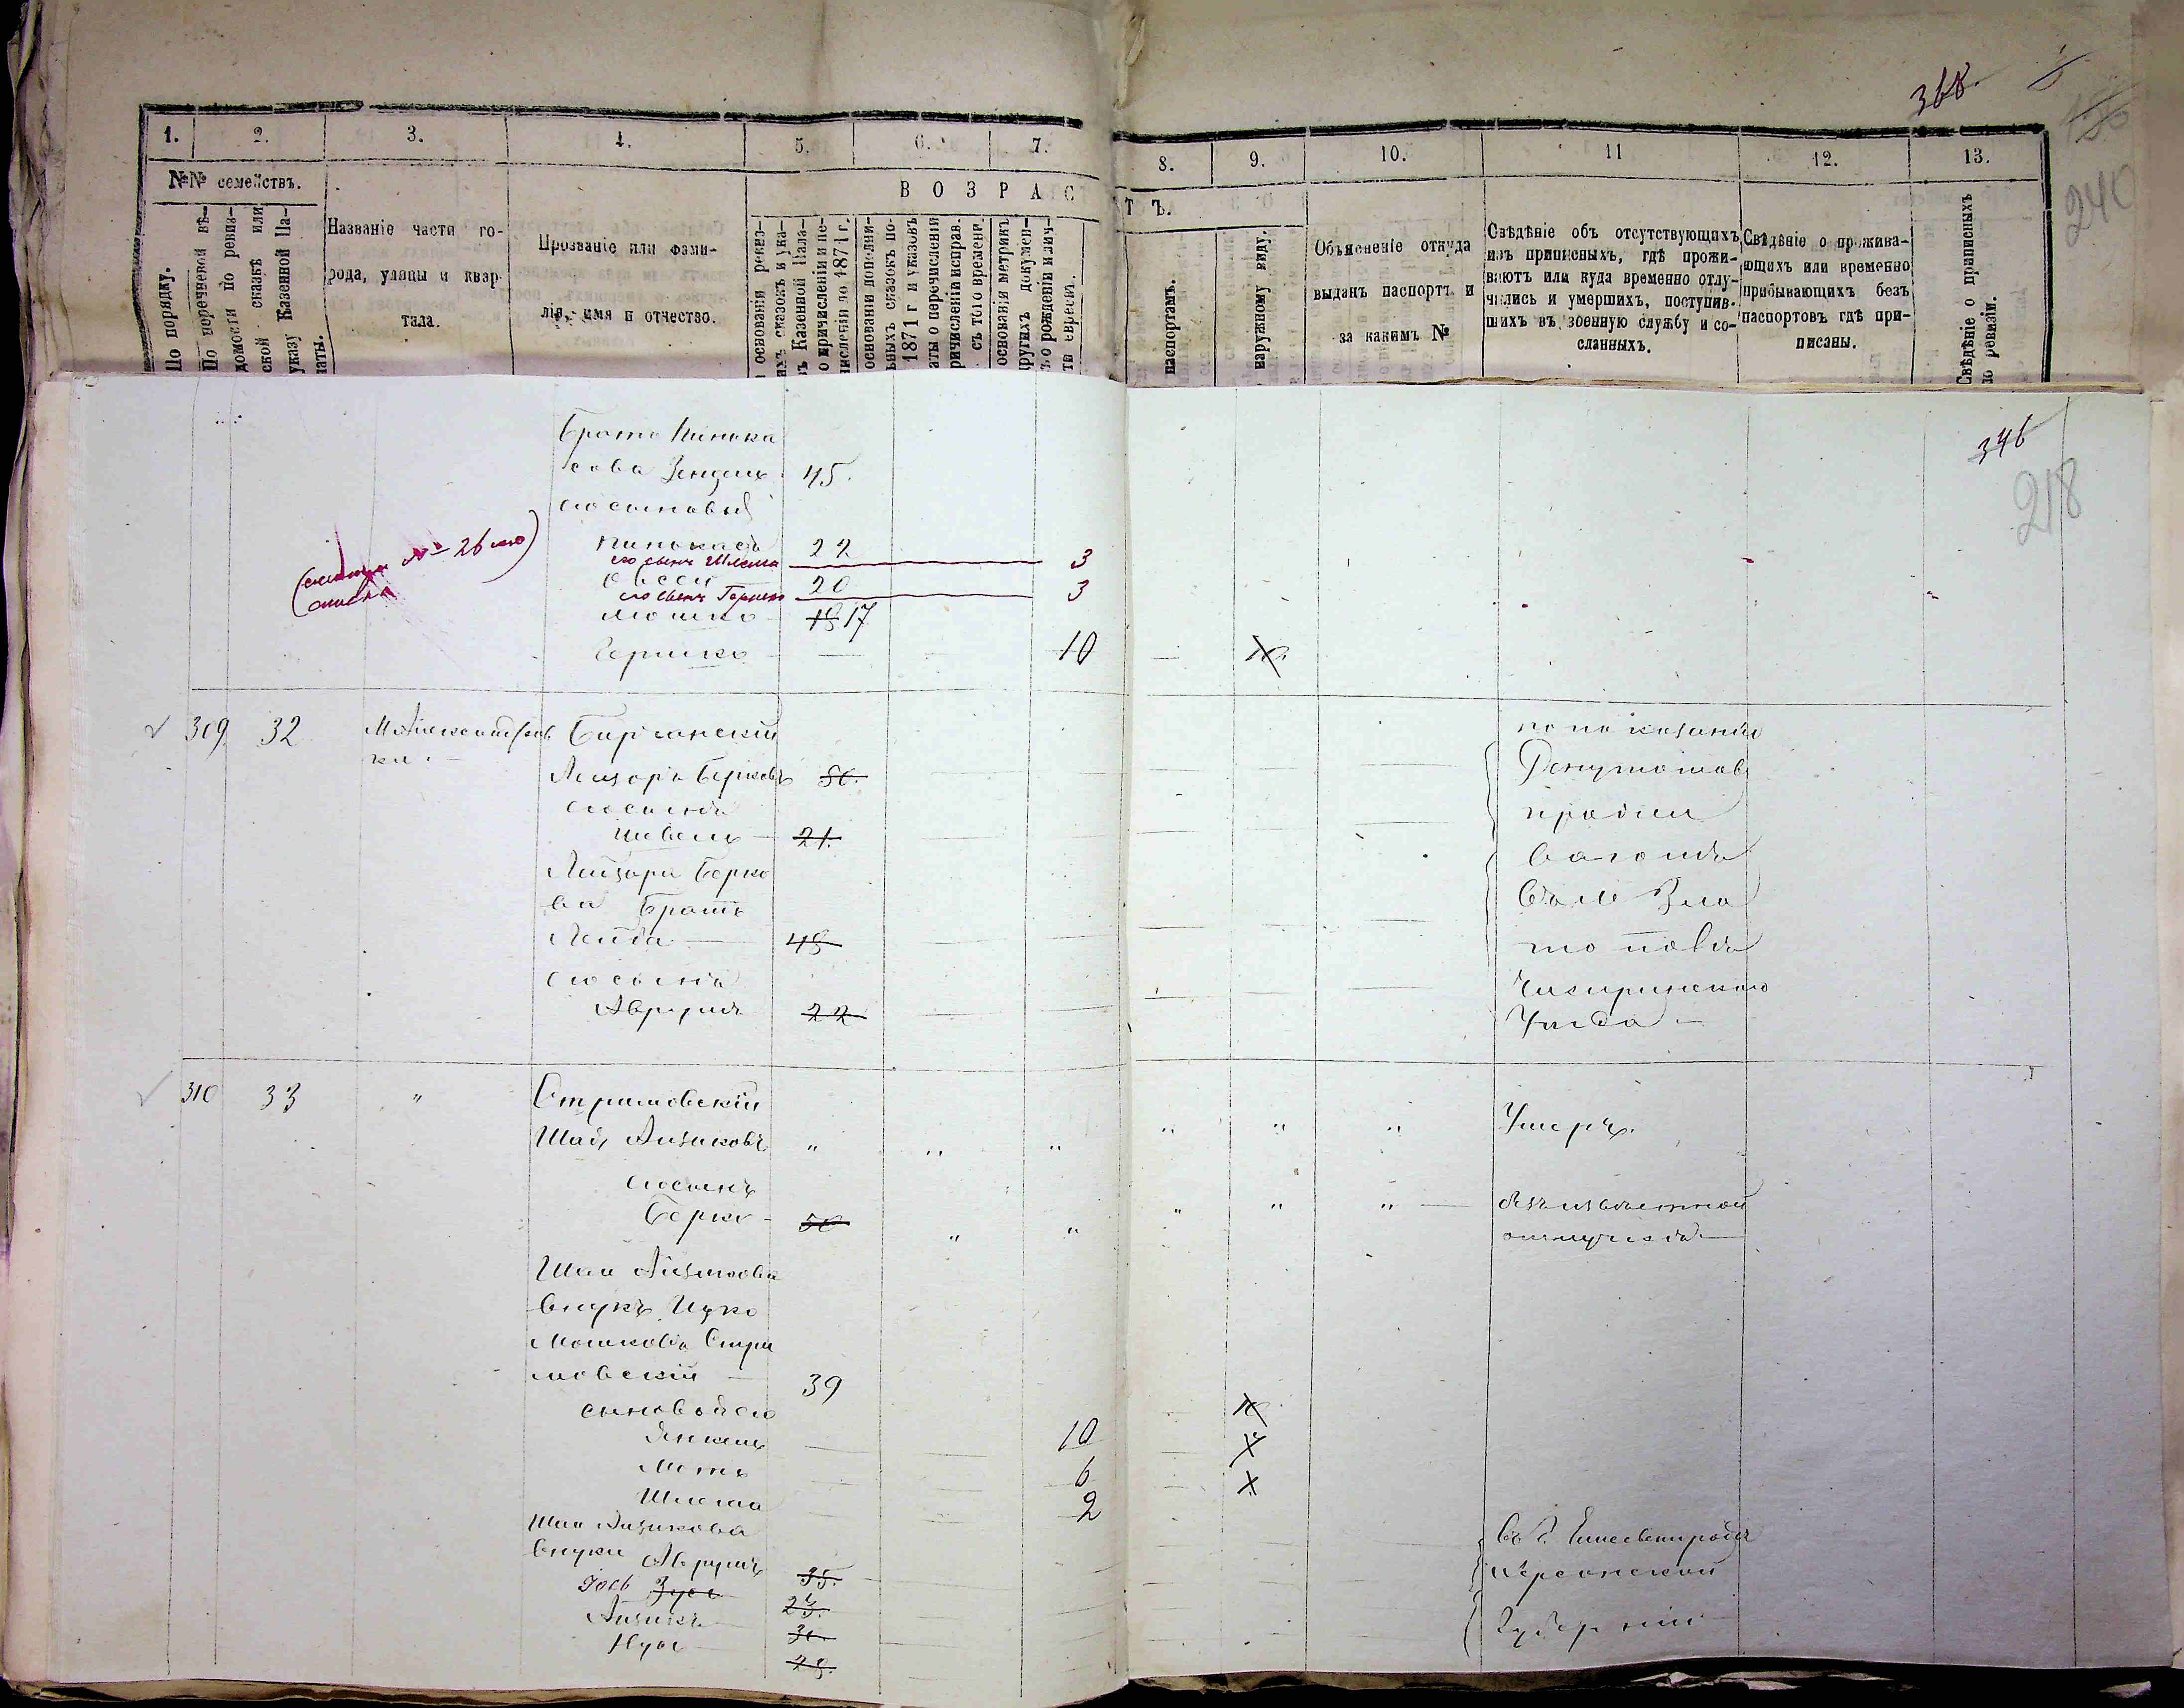 368.
240
1.
2.
3.
4.
5.
6.
7.
8.
9.
10.
11
12.
13.
№№ семействъ.
В О З Р А С Т Ъ.
По порядку.
По перечневой вѣ-
домости по ревиз-
ской сказкѣ или
указу Казенной Па-
латы.
Названіе части го-
рода, улицы и квар-
тала.
Прозваніе или фами-
лія, имя и отчество.
основаніи ревиз-
ихъ сказокъ и ука-
въ Казенной Пала-
о причисленіи и пе-
численіи до 1871 г.
основаніи дополни-
ьныхъ сказокъ по-
1871 г. и указовъ
аты о перечисленіи
ричисленіи исправ.
съ того времени.
основаніи метрикъ
ругихъ докумен-
ъ о рожденіи и лич-
ти евреевъ.
паспортамъ.
наружному виду.
Объясненіе откуда
выданъ паспортъ и
за какимъ №
Свѣдѣніе объ отсутствующихъ
изъ приписныхъ, гдѣ прожи-
ваютъ или куда временно отлу-
чились и умершихъ, поступив-
шихъ въ военную службу и со-
сланныхъ.
Свѣдѣніе о прожива-
ющихъ или временно
прибывающихъ безъ
паспортовъ гдѣ при-
писаны.
Свѣдѣніе о приписныхъ
по ревизіи.
346
218
Братъ Пинька
сова Зендель 45.
его сыновья
Пинькасъ 22
его сынъ Шлема 3
Овсей 20
его сынъ Гершко 3
Мошко 18 17
Гершко — 10
№ 26
309 32 М Александров
ка
Бирганскій
Лейзоръ Берковъ 50.
его сынъ
Шевель 21.
Лейзора Берко
ва Братъ
Лейба — 48
его сынъ
Аврумъ 22
по показанію
Депутатовъ
прожи
ваютъ
въ м Зла
тополѣ
Чигиринскаго
Уѣзда —
310 33 "
Стримовскій
Шая Айзиковъ " " " " " " Умеръ.
его сынъ
Берко 50 " " " " " безъизвѣстной
отлучкѣ
Шаи Айзикова
внукъ Ицко
Мошковъ Стри
мовскій — 39
сыновья его
Янкель 10
Мотъ 6
Шлема 2
Шаи Айзикова
внуки Аврумъ 35.
Іось Зусь 23.
Айзикъ 30
Нусь 28.
въ г. Елисаветградѣ
Херсонской
Губерніи